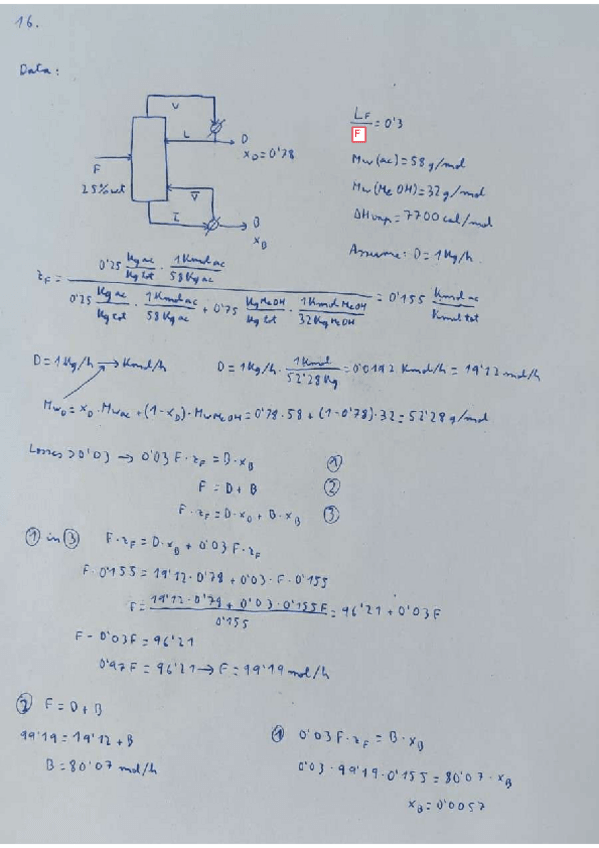 16.
Data:
V
L
D
x_D = 0'78
F
25% wt
V̅
L̅
B
x_B
L_F / F = 0'3
Mw (ac) = 58 g/mol
Mw (MeOH) = 32 g/mol
ΔHvap = 7700 cal/mol
Assume: D = 1 Kg/h.
z_F = (0'25 Kg ac/Kg tot · 1 Kmol ac/58 Kg ac) / (0'25 Kg ac/Kg tot · 1 Kmol ac/58 Kg ac + 0'75 Kg MeOH/Kg tot · 1 Kmol MeOH/32 Kg MeOH) = 0'155 Kmol ac/Kmol tot
D = 1 Kg/h → Kmol/h D = 1 Kg/h · 1 Kmol/52'28 Kg = 0'0192 Kmol/h = 19'12 mol/h
Mw_D = x_D · Mw ac + (1 - x_D) · Mw MeOH = 0'78 · 58 + (1 - 0'78) · 32 = 52'28 g/mol
Losses > 0'03 → 0'03 F · z_F = B · x_B ①
F = D + B ②
F · z_F = D · x_D + B · x_B ③
① in ③ F · z_F = D · x_D + 0'03 F · z_F
F · 0'155 = 19'12 · 0'78 + 0'03 · F · 0'155
F = (19'12 · 0'78 + 0'03 · 0'155 F) / 0'155 = 96'21 + 0'03 F
F - 0'03 F = 96'21
0'97 F = 96'21 → F = 99'19 mol/h
② F = D + B
99'19 = 19'12 + B
B = 80'07 mol/h
① 0'03 F · z_F = B · x_B
0'03 · 99'19 · 0'155 = 80'07 · x_B
x_B = 0'0057